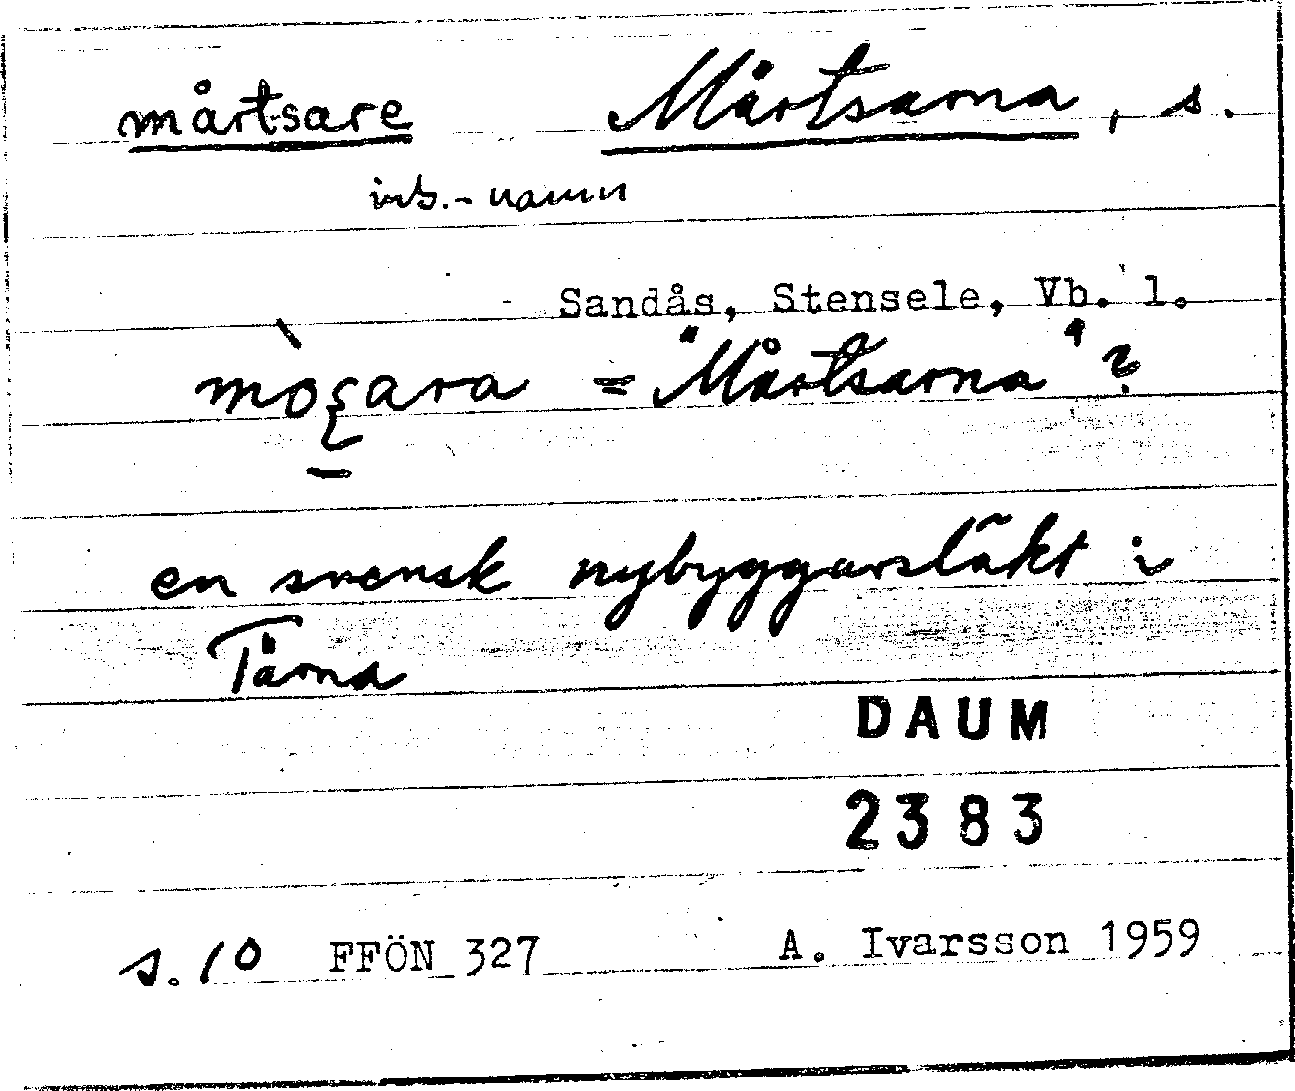 mårtsare Mårtsarna, s.
inb.-namn
Sandås, Stensele, Vb. l.
= "Mårtsarna"?
en svensk nybyggarsläkt i
Tärna
DAUM
2383
s. 10 FFÖN 327 A. Ivarsson 1959